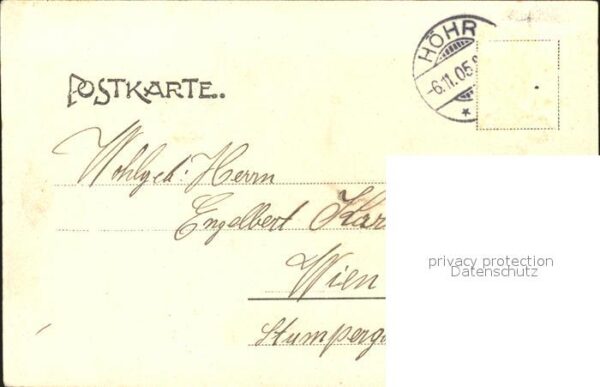 HÖHR
-6.11.05
POSTKARTE.
Wohlgeb. Herrn
Engelbert Kar
Wien
Stumperg
privacy protection
Datenschutz